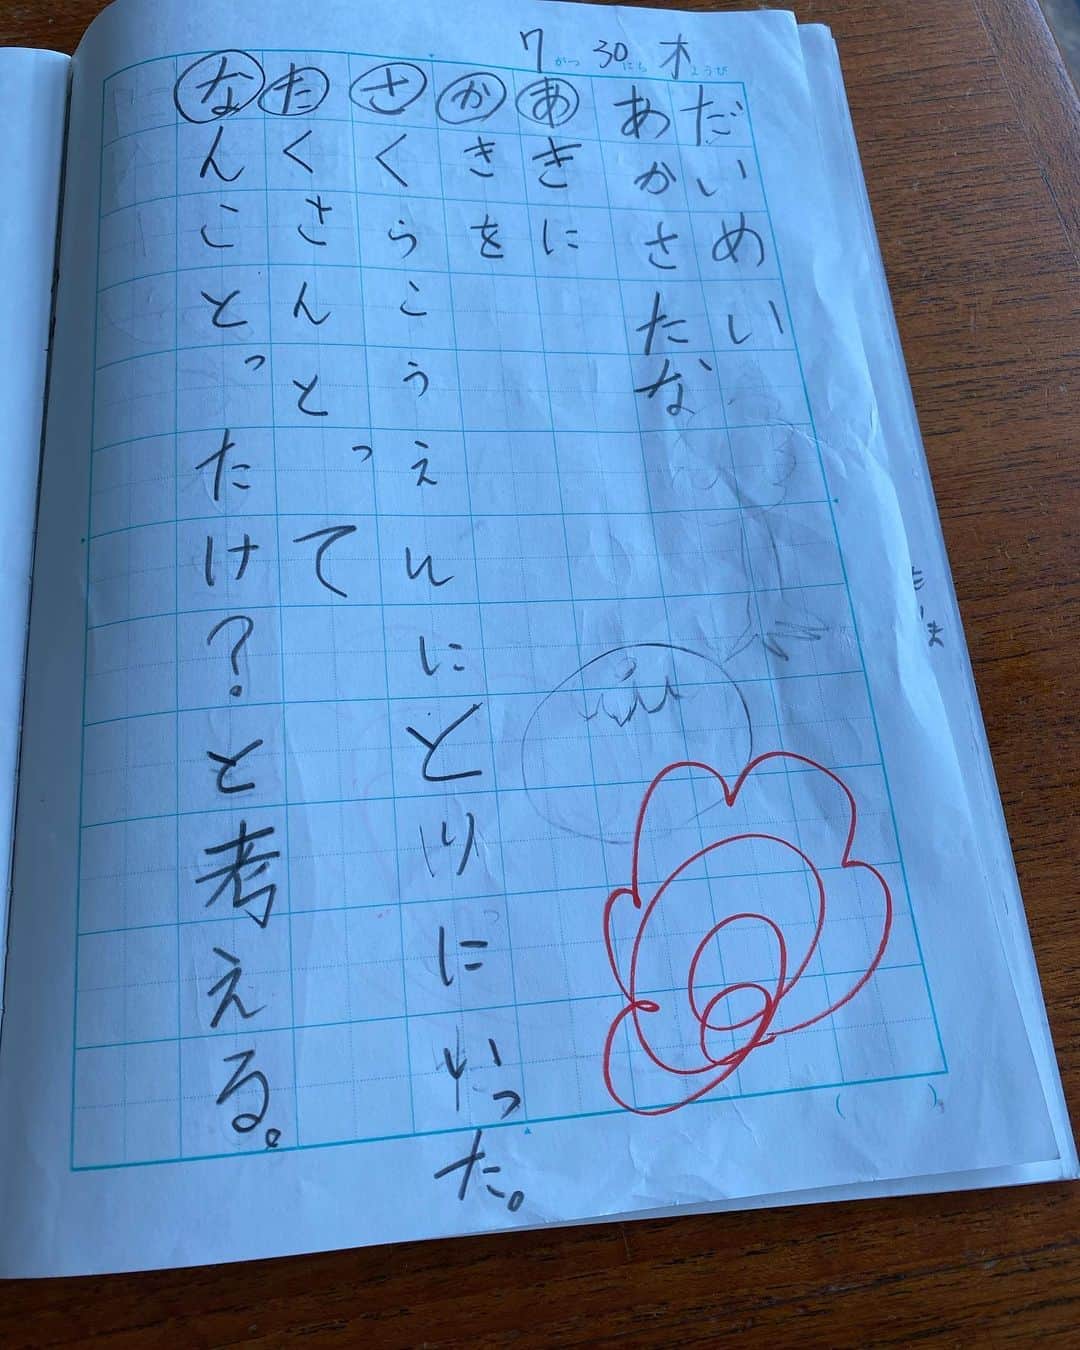 7がつ30にち木ようび
だいめい
あかさたな
あきに
かきを
さくらこうえんにとりにいった。
たくさんとって
なんことったけ？と考える。